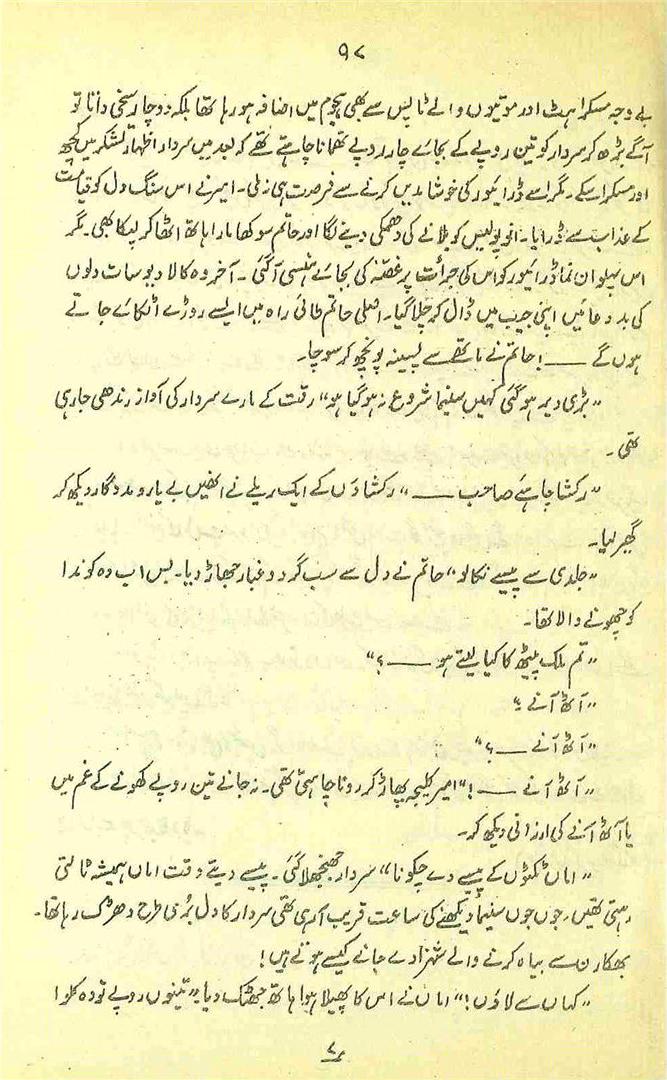 ۹۷
بے وجہ مسکراہٹ اور موتیوں والے ٹاپس سے بھی ہجوم میں اضافہ ہو رہا تھا بلکہ دو چار سخی داتا تو
آگے بڑھ کر سردار کو تین روپے کے بجائے چار روپے تھمانا چاہتے تھے کہ بعد میں سردار اظہار تشکر میں کچھ
اور مسکرا سکے۔ مگر اسے ڈرائیور کی خوشامدیں کرنے سے فرصت ہی نہ ملی۔ امیر نے اس سنگ دل کو قیامت
کے عذاب سے ڈرایا۔ انو پولیس کو بلانے کی دھمکی دینے لگا اور حاتم سوکھا مارا ہاتھ اٹھا کر لپکا بھی۔ مگر
اس پہلوان نما ڈرائیور کو اس کی جرأت پر غصہ کی بجائے ہنسی آگئی۔ آخر وہ کالا دیو سات دلوں
کی بددعائیں اپنی جیب میں ڈال کر چلا گیا۔ اصلی حاتم طائی راہ میں ایسے روڑے اٹکائے جاتے
ہوں گے ——! حاتم نے ماتھے سے پسینہ پونچھ کر سوچا۔
”بڑی دیر ہوگئی کہیں سنیما شروع نہ ہو گیا ہو“ رقت کے مارے سردار کی آواز رندھی جا رہی
تھی۔
”رکشا چاہئے صاحب ——“ رکشاؤں کے ایک ریلے نے انھیں بے یار و مددگار دیکھ کر
گھیر لیا۔
”جلدی سے پیسے نکالو“ حاتم نے دل سے سب گرد و غبار جھاڑ دیا۔ بس اب وہ کوندا
کو چھونے والا تھا۔
”تم ملک پیٹھ کا کیا لیتے ہو ——؟“
”آٹھ آنے“
”آٹھ آنے ——؟“
”آٹھ آنے ——!“ امیر کلیجہ پھاڑ کر رونا چاہتی تھی۔ نہ جانے تین روپے کھونے کے غم میں
یا آٹھ آنے کی ارزانی دیکھ کر۔
”اماں ٹکٹوں کے پیسے دے چکو نا“ سردار جھنجھلا گئی۔ پیسے دیتے وقت اماں ہمیشہ ٹالتی
رہتی تھیں، جوں جوں سنیما دیکھنے کی ساعت قریب آ رہی تھی سردار کا دل بری طرح دھڑک رہا تھا۔
بھکارن سے بیاہ کرنے والے شہزادے جانے کیسے ہوتے ہیں!
”کہاں سے لاؤں!“ اماں نے اس کا پھیلا ہوا ہاتھ جھٹک دیا۔ ”تینوں روپے تو وہ کلوا